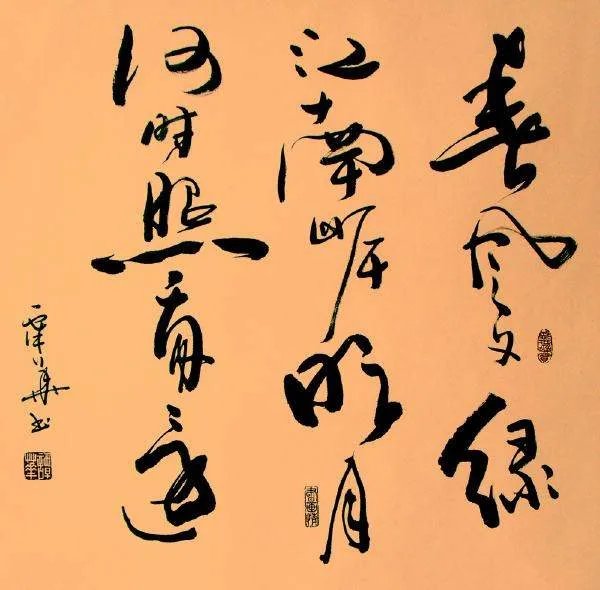 春风又绿
江南岸明月
何时照我还